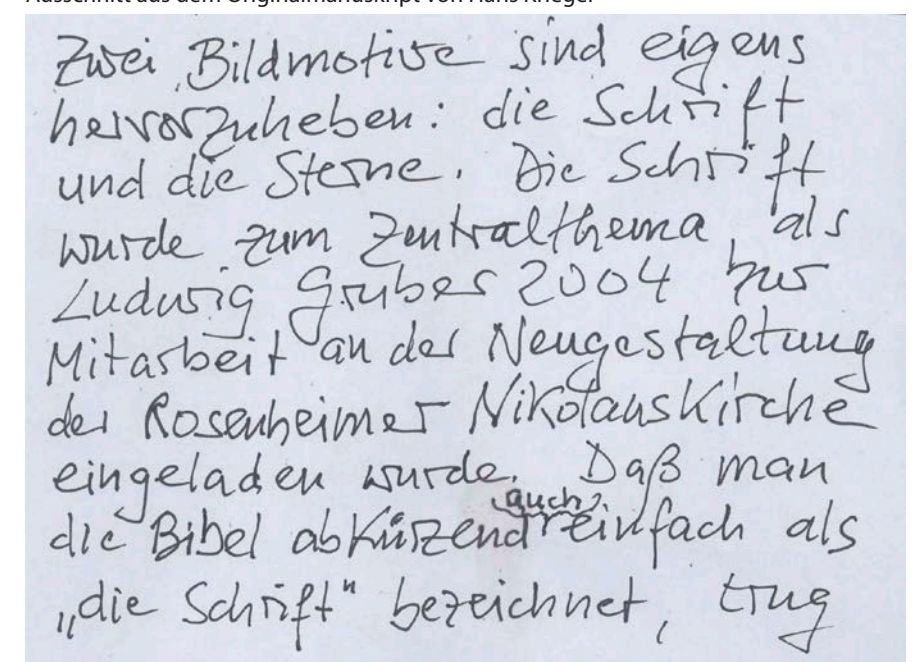 Ausschnitt aus dem Originalmanuskript von Hans Krieger
Zwei Bildmotive sind eigens
hervorzuheben: die Schrift
und die Sterne. Die Schrift
wurde zum Zentralthema, als
Ludwig Gruber 2004 zur
Mitarbeit an der Neugestaltung
der Rosenheimer Nikolauskirche
eingeladen wurde. Daß man
auch
die Bibel abkürzend einfach als
„die Schrift" bezeichnet, trug